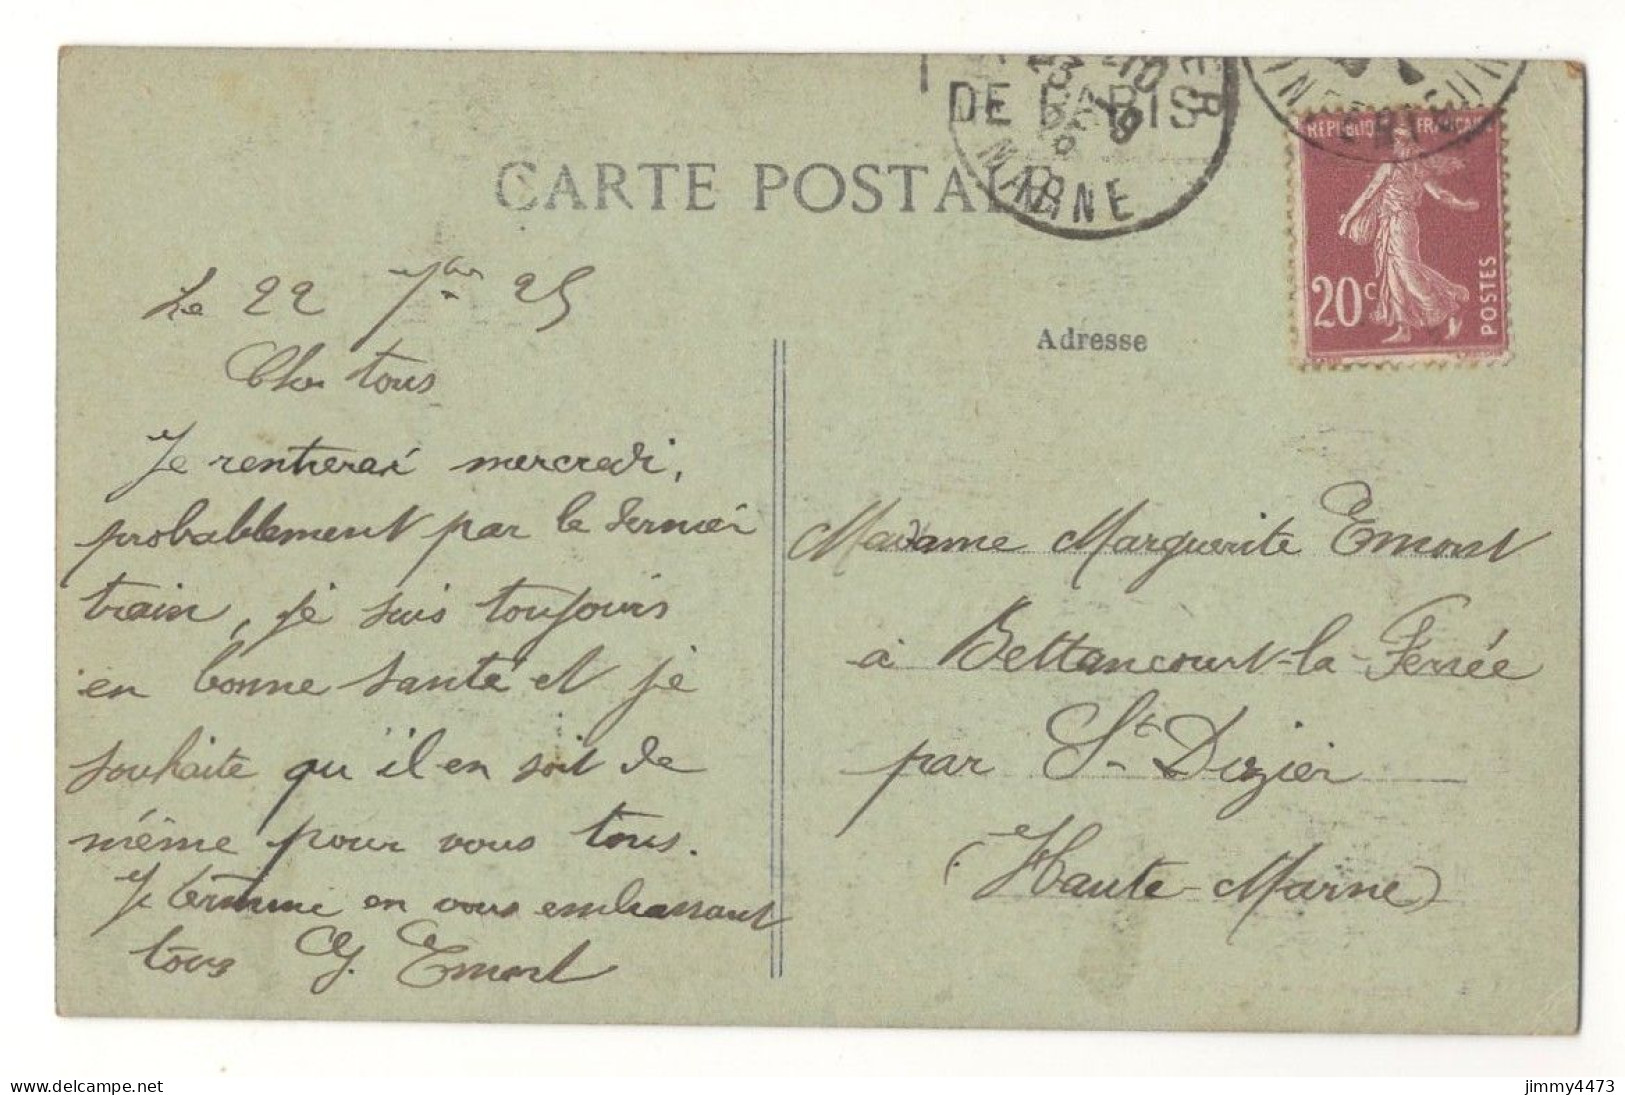 DE PARIS
MARNE
CARTE POSTALE
REPUBLIQUE FRANÇAISE
20c
POSTES
Le 22 7bre 25
Cher tous
Adresse
Je rentrerai mercredi,
probablement par le dernier
train, je suis toujours
en bonne santé et je
souhaite qu'il en soit de
même pour vous tous.
Je termine en vous embrassant
tous G. Emont
Madame Marguerite Emont
à Bettancourt-la-Ferrée
par St Dizier
(Haute-Marne)
delcampe.net
jimmy4473